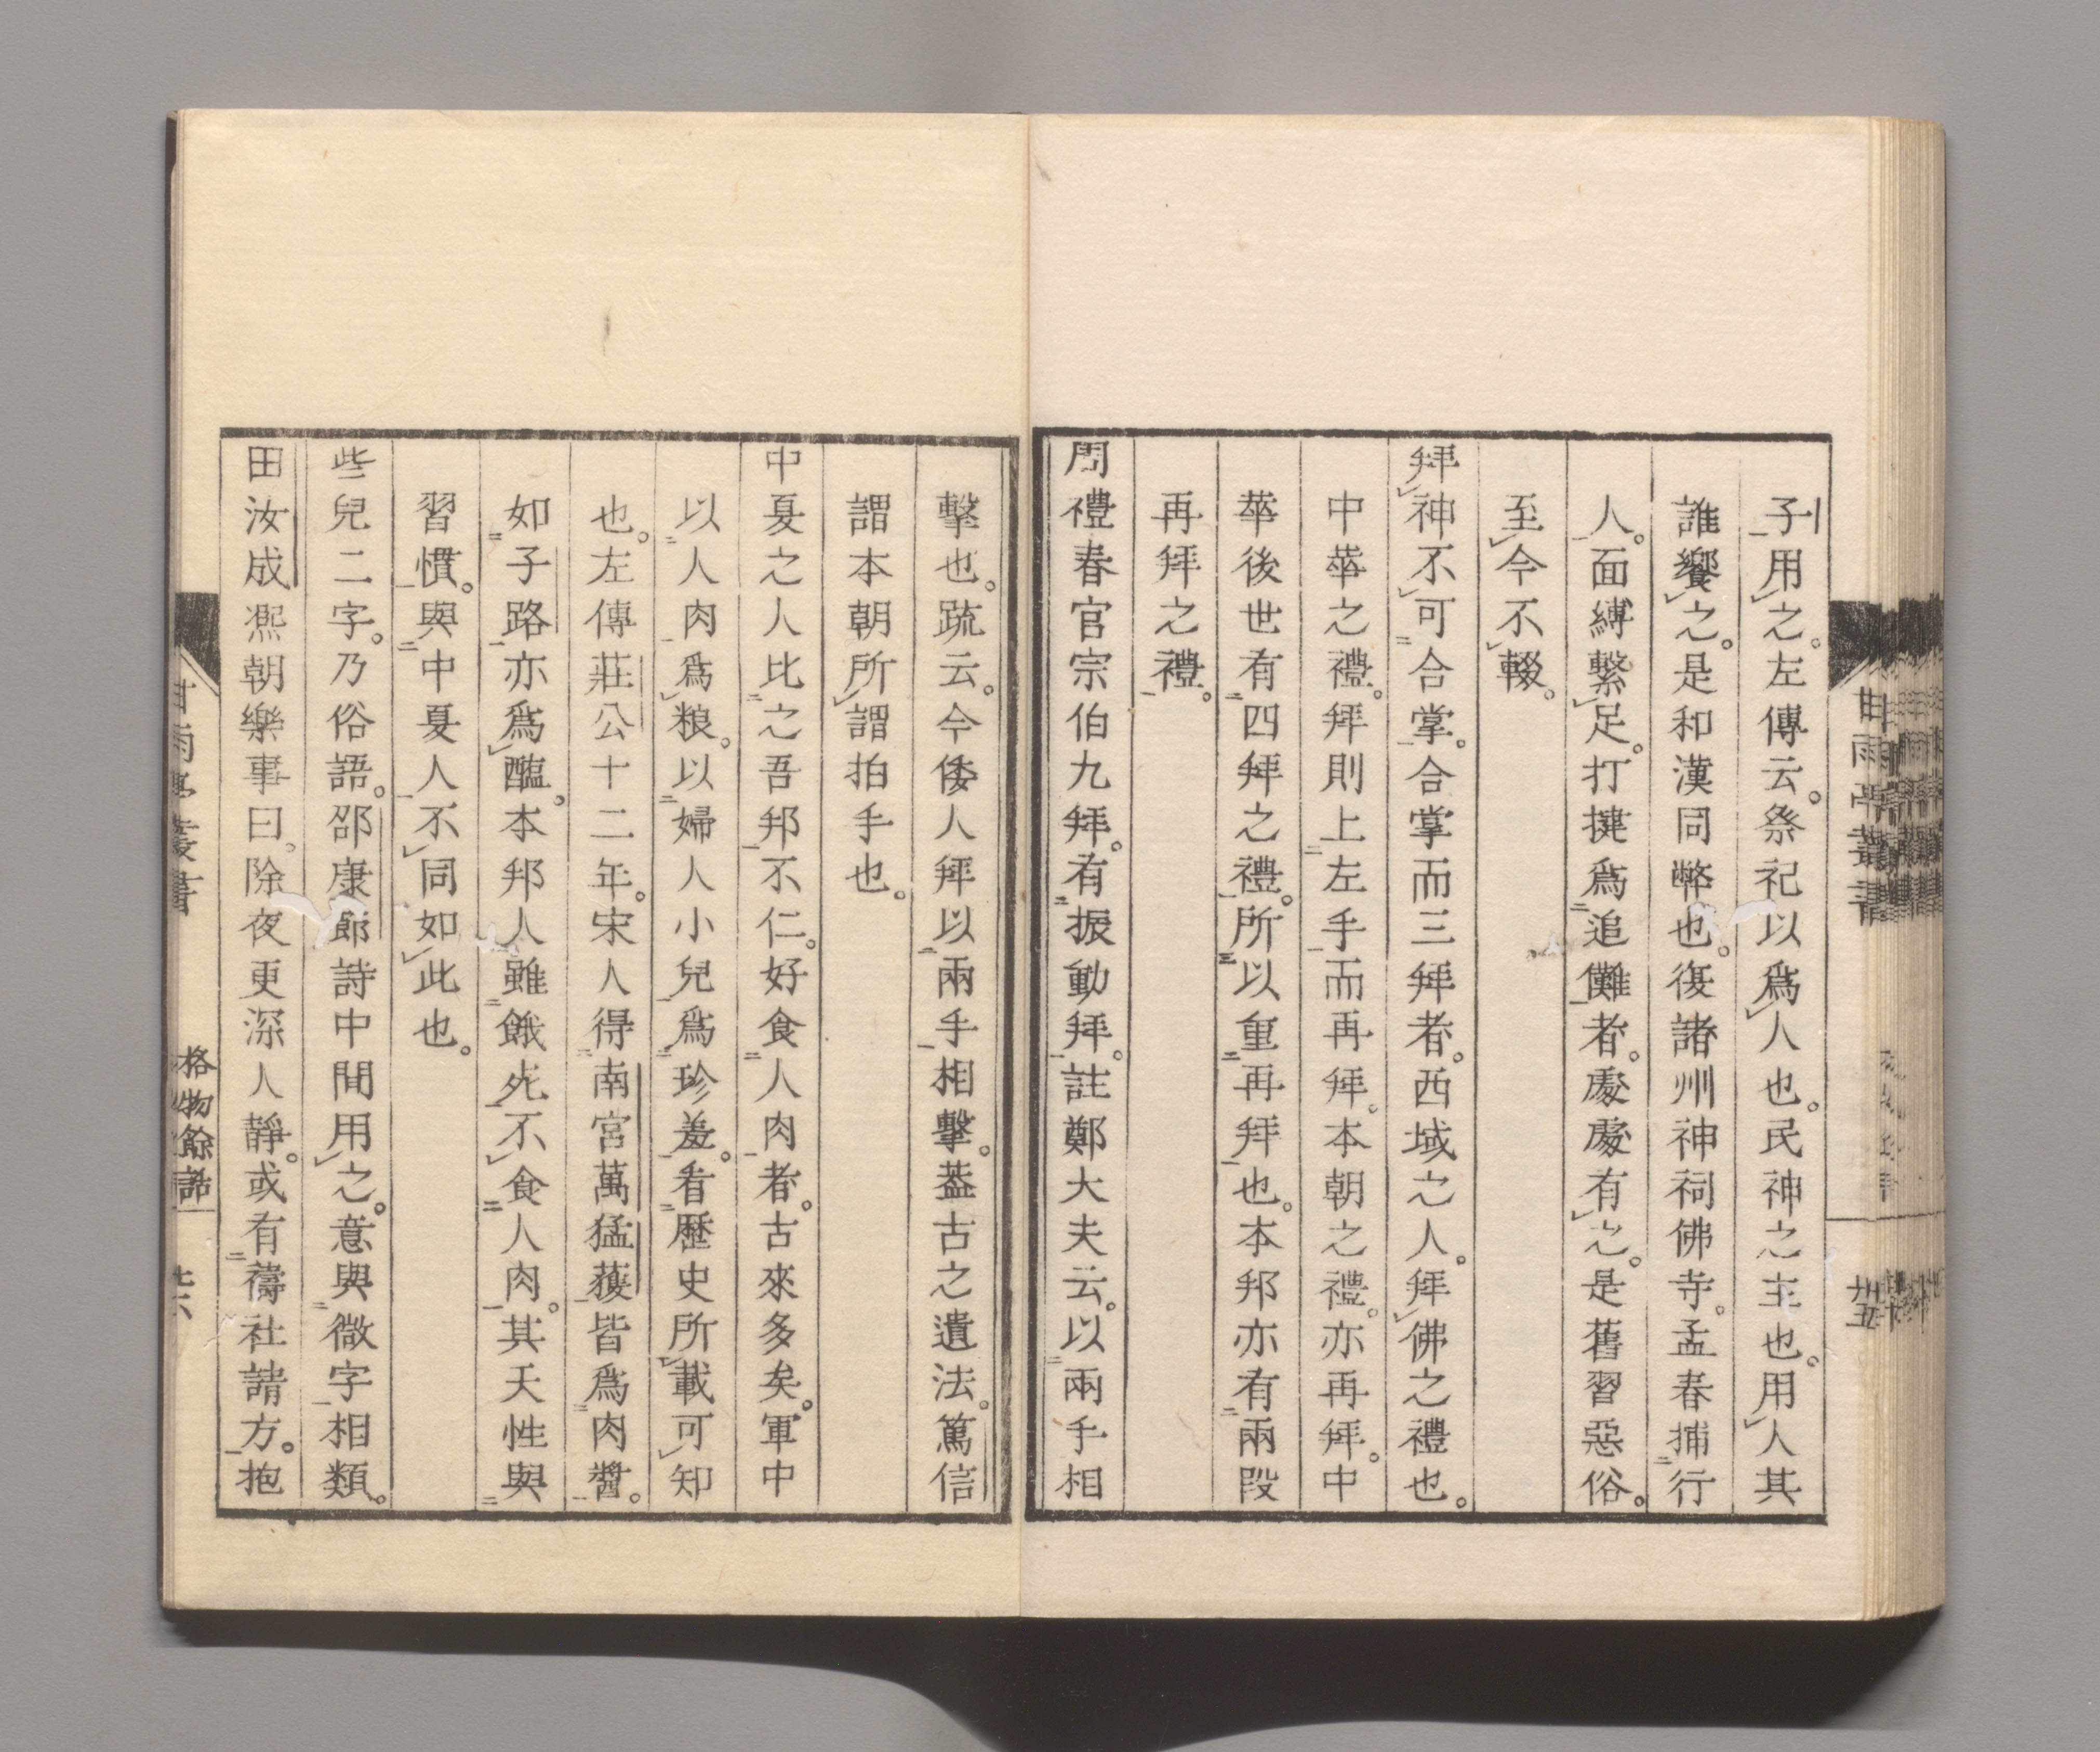 子用之。左傳云。祭祀以爲人也。民神之主也。用人其
誰饗之。是和漢同弊也。復諸州神祠佛寺。孟春捕行
人。面縛繫足。打揵爲追儺者。處處有之。是舊習惡俗。
至今不輟。
拜神不可合掌。合掌而三拜者。西域之人。拜佛之禮也。
中華之禮。拜則上左手而再拜。本朝之禮。亦再拜。中
華後世有四拜之禮。所以重再拜也。本邦亦有兩段
再拜之禮。
周禮春官宗伯九拜。有振動拜。註鄭大夫云。以兩手相
擊也。疏云。今倭人拜以兩手相擊。蓋古之遺法。篤信
謂本朝所謂拍手也。
中夏之人比之吾邦不仁。好食人肉者。古來多矣。軍中
以人肉爲粮。以婦人小兒爲珍羞。看歷史所載可知
也。左傳莊公十二年。宋人得南宮萬猛獲皆爲肉醬。
如子路亦爲醢。本邦人雖餓死不食人肉。其天性與
習慣。與中夏人不同如此也。
些兒二字。乃俗語。邵康節詩中間用之。意與微字相類。
田汝成熈朝樂事曰。除夜更深人靜。或有禱社請方。抱
甘雨亭叢書
格物餘話
廿六
甘雨亭叢書
廿五